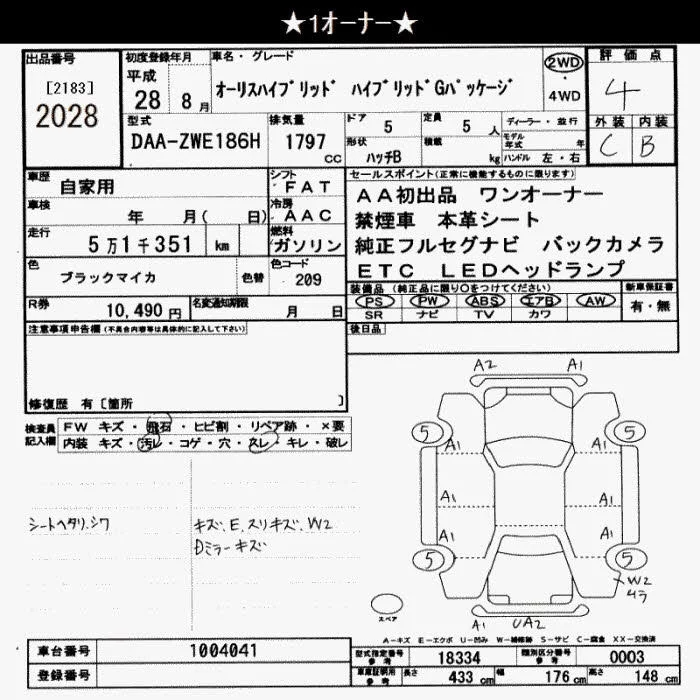 ★1オーナー★
出品番号
[2183]
2028
初度登録年月
平成
28 8月
車名・グレード
オーリスハイブリッド ハイブリッドGパッケージ
2WD
・
4WD
評価点
4
外装 内装
C B
型式
DAA-ZWE186H
排気量
1797
cc
ドア
5
定員
5 人
形状
ハッチB
積載
kg
ディーラー・並行
モデル年式 年
ハンドル 左・右
車歴
自家用
シフト
FAT
車検
年 月( 日)
冷房
AAC
走行
5万1千351 km
燃料
ガソリン
色
ブラックマイカ
色替
色コード
209
R券
10,490円
名変通知期限
月 日
セールスポイント(正常に機能するものに限ります)
AA初出品 ワンオーナー
禁煙車 本革シート
純正フルセグナビ バックカメラ
ETC LEDヘッドランプ
装備品(純正品に限り○をつけてください)
PS PW ABS エアB AW
SR ナビ TV カワ
新車保証書
有・無
後日品
注意事項申告欄(不具合内容等は具体的に記入して下さい)
修復歴 有〔箇所 〕
検査員記入欄
FW キズ・飛石・ヒビ割・リペア跡・×要
内装 キズ・汚レ・コゲ・穴・スレ・キレ・破レ
シートヘタリ、シワ
キズ、E、スリキズ、W2
Dミラーキズ
A2 A1
5 5
A1 A1
A1 A1
A1 A1
5 5
W2
スペア
A1 UA2
A-キズ E-エクボ U-凹み W-補修跡 S-サビ C-腐食 XX-交換済
車台番号
1004041
登録番号
型式指定番号
参考
18334
類別区分番号
参考
0003
車庫証明用
参考
長さ
433 cm
幅
176 cm
高さ
148 cm